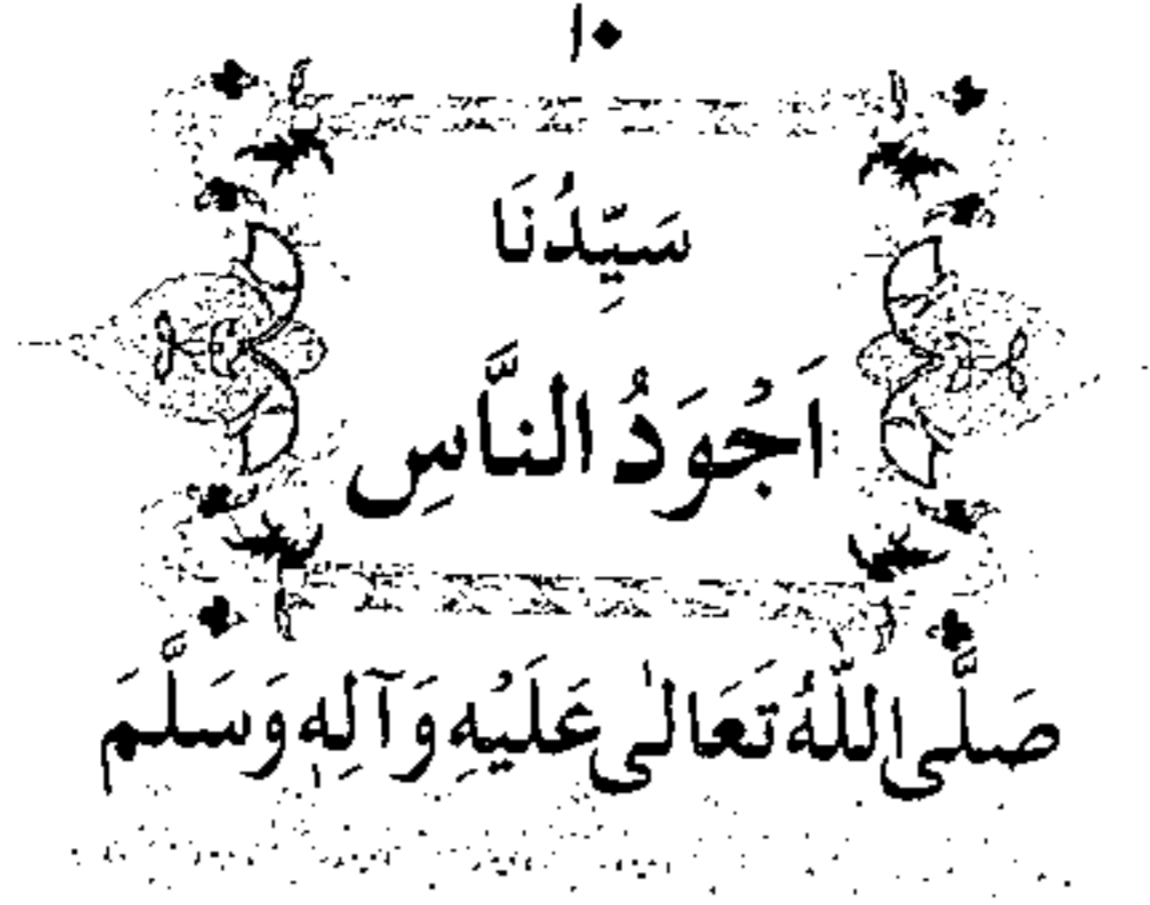 ١٠
سَيِّدُنَا
اَجْوَدُ النَّاسِ
صَلَّى اللّٰهُ تَعَالٰى عَلَيْهِ وَآلِهٖ وَسَلَّمَ